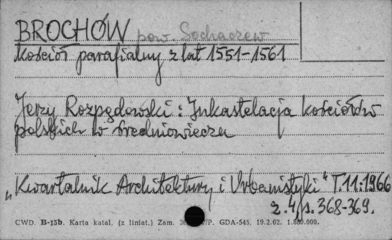 BROCHÓW pow. Sochaczew
kościół parafialny z lat 1551-1561
Jerzy Rozpędowski: Inkastelacja kościołów
polskich w średniowieczu
„Kwartalnik Architektury i Urbanistyki" T.11:1966
z.4, s.368-369.
CWD. B-13b. Karta katal. (z liniat.) Zam. GDA-545. 19.2.62.